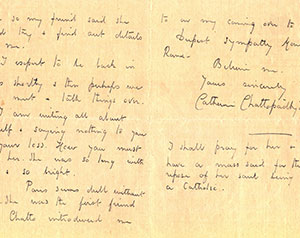 so my friend said she
try & find out details
me.
I expect to be back in
shortly & then perhaps we
meet & talk things over.
I am writing all about
self & saying nothing to you
your loss. How you must
her. She was so long with
& so bright.
Paris seems dull without
She was the first friend
Chatto introduced me
to on my coming over to
Deepest sympathy
Rana.
Believe me.
Yours sincerely
Catherine Chattopadhy
I shall pray for her &
have a mass said for the
repose of her soul being
a Catholic.